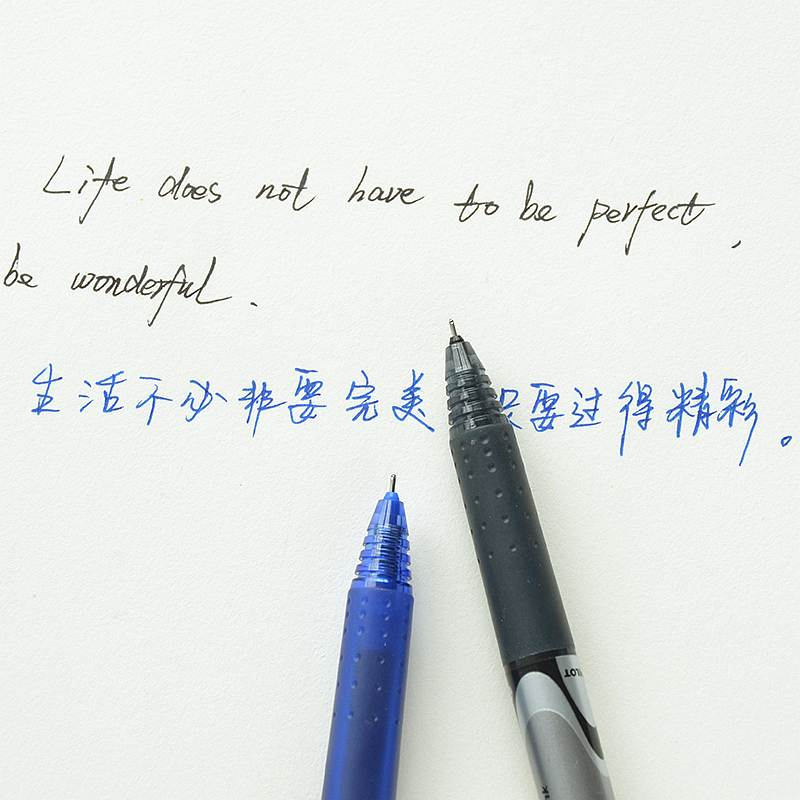 Life does not have to be perfect,
be wonderful.
生活不必非要完美 只要过得精彩。